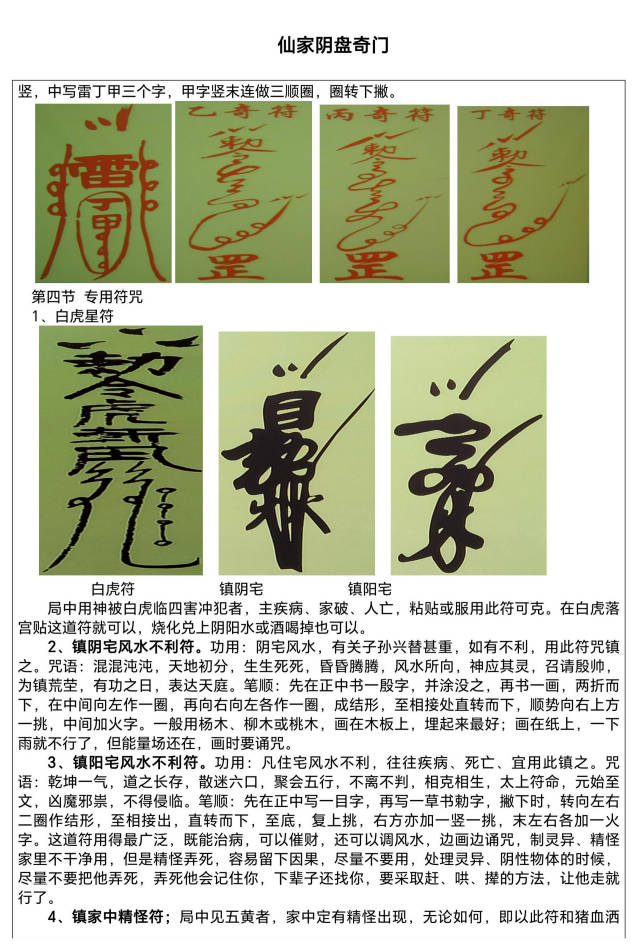 仙家阴盘奇门
竖，中写雷丁甲三个字，甲字竖末连做三顺圈，圈转下撇。
雷丁甲
乙奇符
丙奇符
丁奇符
敕令
敕令
敕令
罡
罡
罡
第四节 专用符咒
1、白虎星符
敕令虎
白虎符 镇阴宅 镇阳宅
局中用神被白虎临四害冲犯者，主疾病、家破、人亡，粘贴或服用此符可克。在白虎落
宫贴这道符就可以，烧化兑上阴阳水或酒喝掉也可以。
2、镇阴宅风水不利符。功用：阴宅风水，有关子孙兴替甚重，如有不利，用此符咒镇
之。咒语：混混沌沌，天地初分，生生死死，昏昏腾腾，风水所向，神应其灵，召请殷帅，
为镇荒茔，有功之日，表达天庭。笔顺：先在正中书一殷字，并涂没之，再书一画，两折而
下，在中间向左作一圈，再向右向左各作一圈，成结形，至相接处直转而下，顺势向右上方
一挑，中间加火字。一般用杨木、柳木或桃木，画在木板上，埋起来最好；画在纸上，一下
雨就不行了，但能量场还在，画时要诵咒。
3、镇阳宅风水不利符。功用：凡住宅风水不利，往往疾病、死亡、宜用此镇之。咒
语：乾坤一气，道之长存，散迷六口，聚会五行，不离不判，相克相生，太上符命，元始至
文，凶魔邪祟，不得侵临。笔顺：先在正中写一目字，再写一草书勅字，撇下时，转向左右
二圈作结形，至相接出，直转而下，至底，复上挑，右方亦加一竖一挑，末左右各加一火
字。这道符用得最广泛，既能治病，可以催财，还可以调风水，边画边诵咒，制灵异、精怪
家里不干净用，但是精怪弄死，容易留下因果，尽量不要用，处理灵异、阴性物体的时候，
尽量不要把他弄死，弄死他会记住你，下辈子还找你，要采取赶、哄、撵的方法，让他走就
行了。
4、镇家中精怪符；局中见五黄者，家中定有精怪出现，无论如何，即以此符和猪血洒